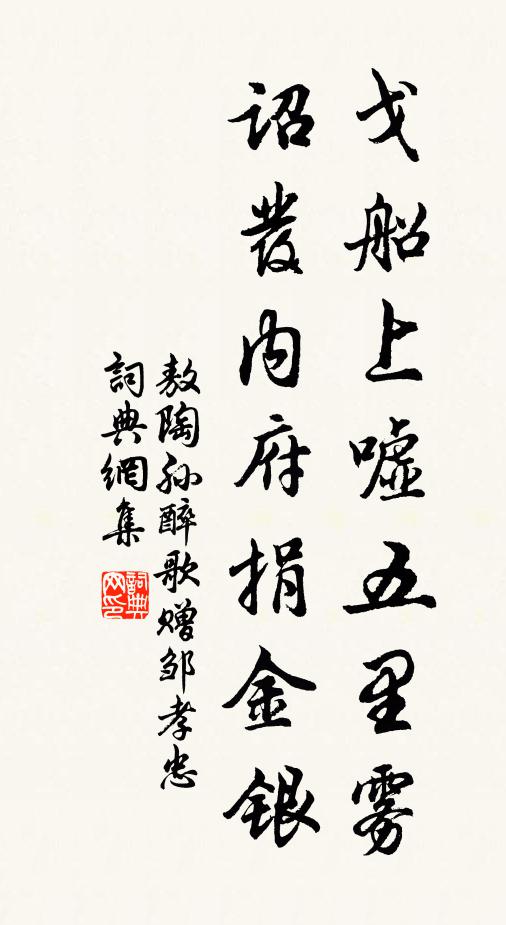 戈船上噓五里雾
詔發内府捐金銀
敖陶孙醉歌赠邹孝忠
詞典網集
詞典网印